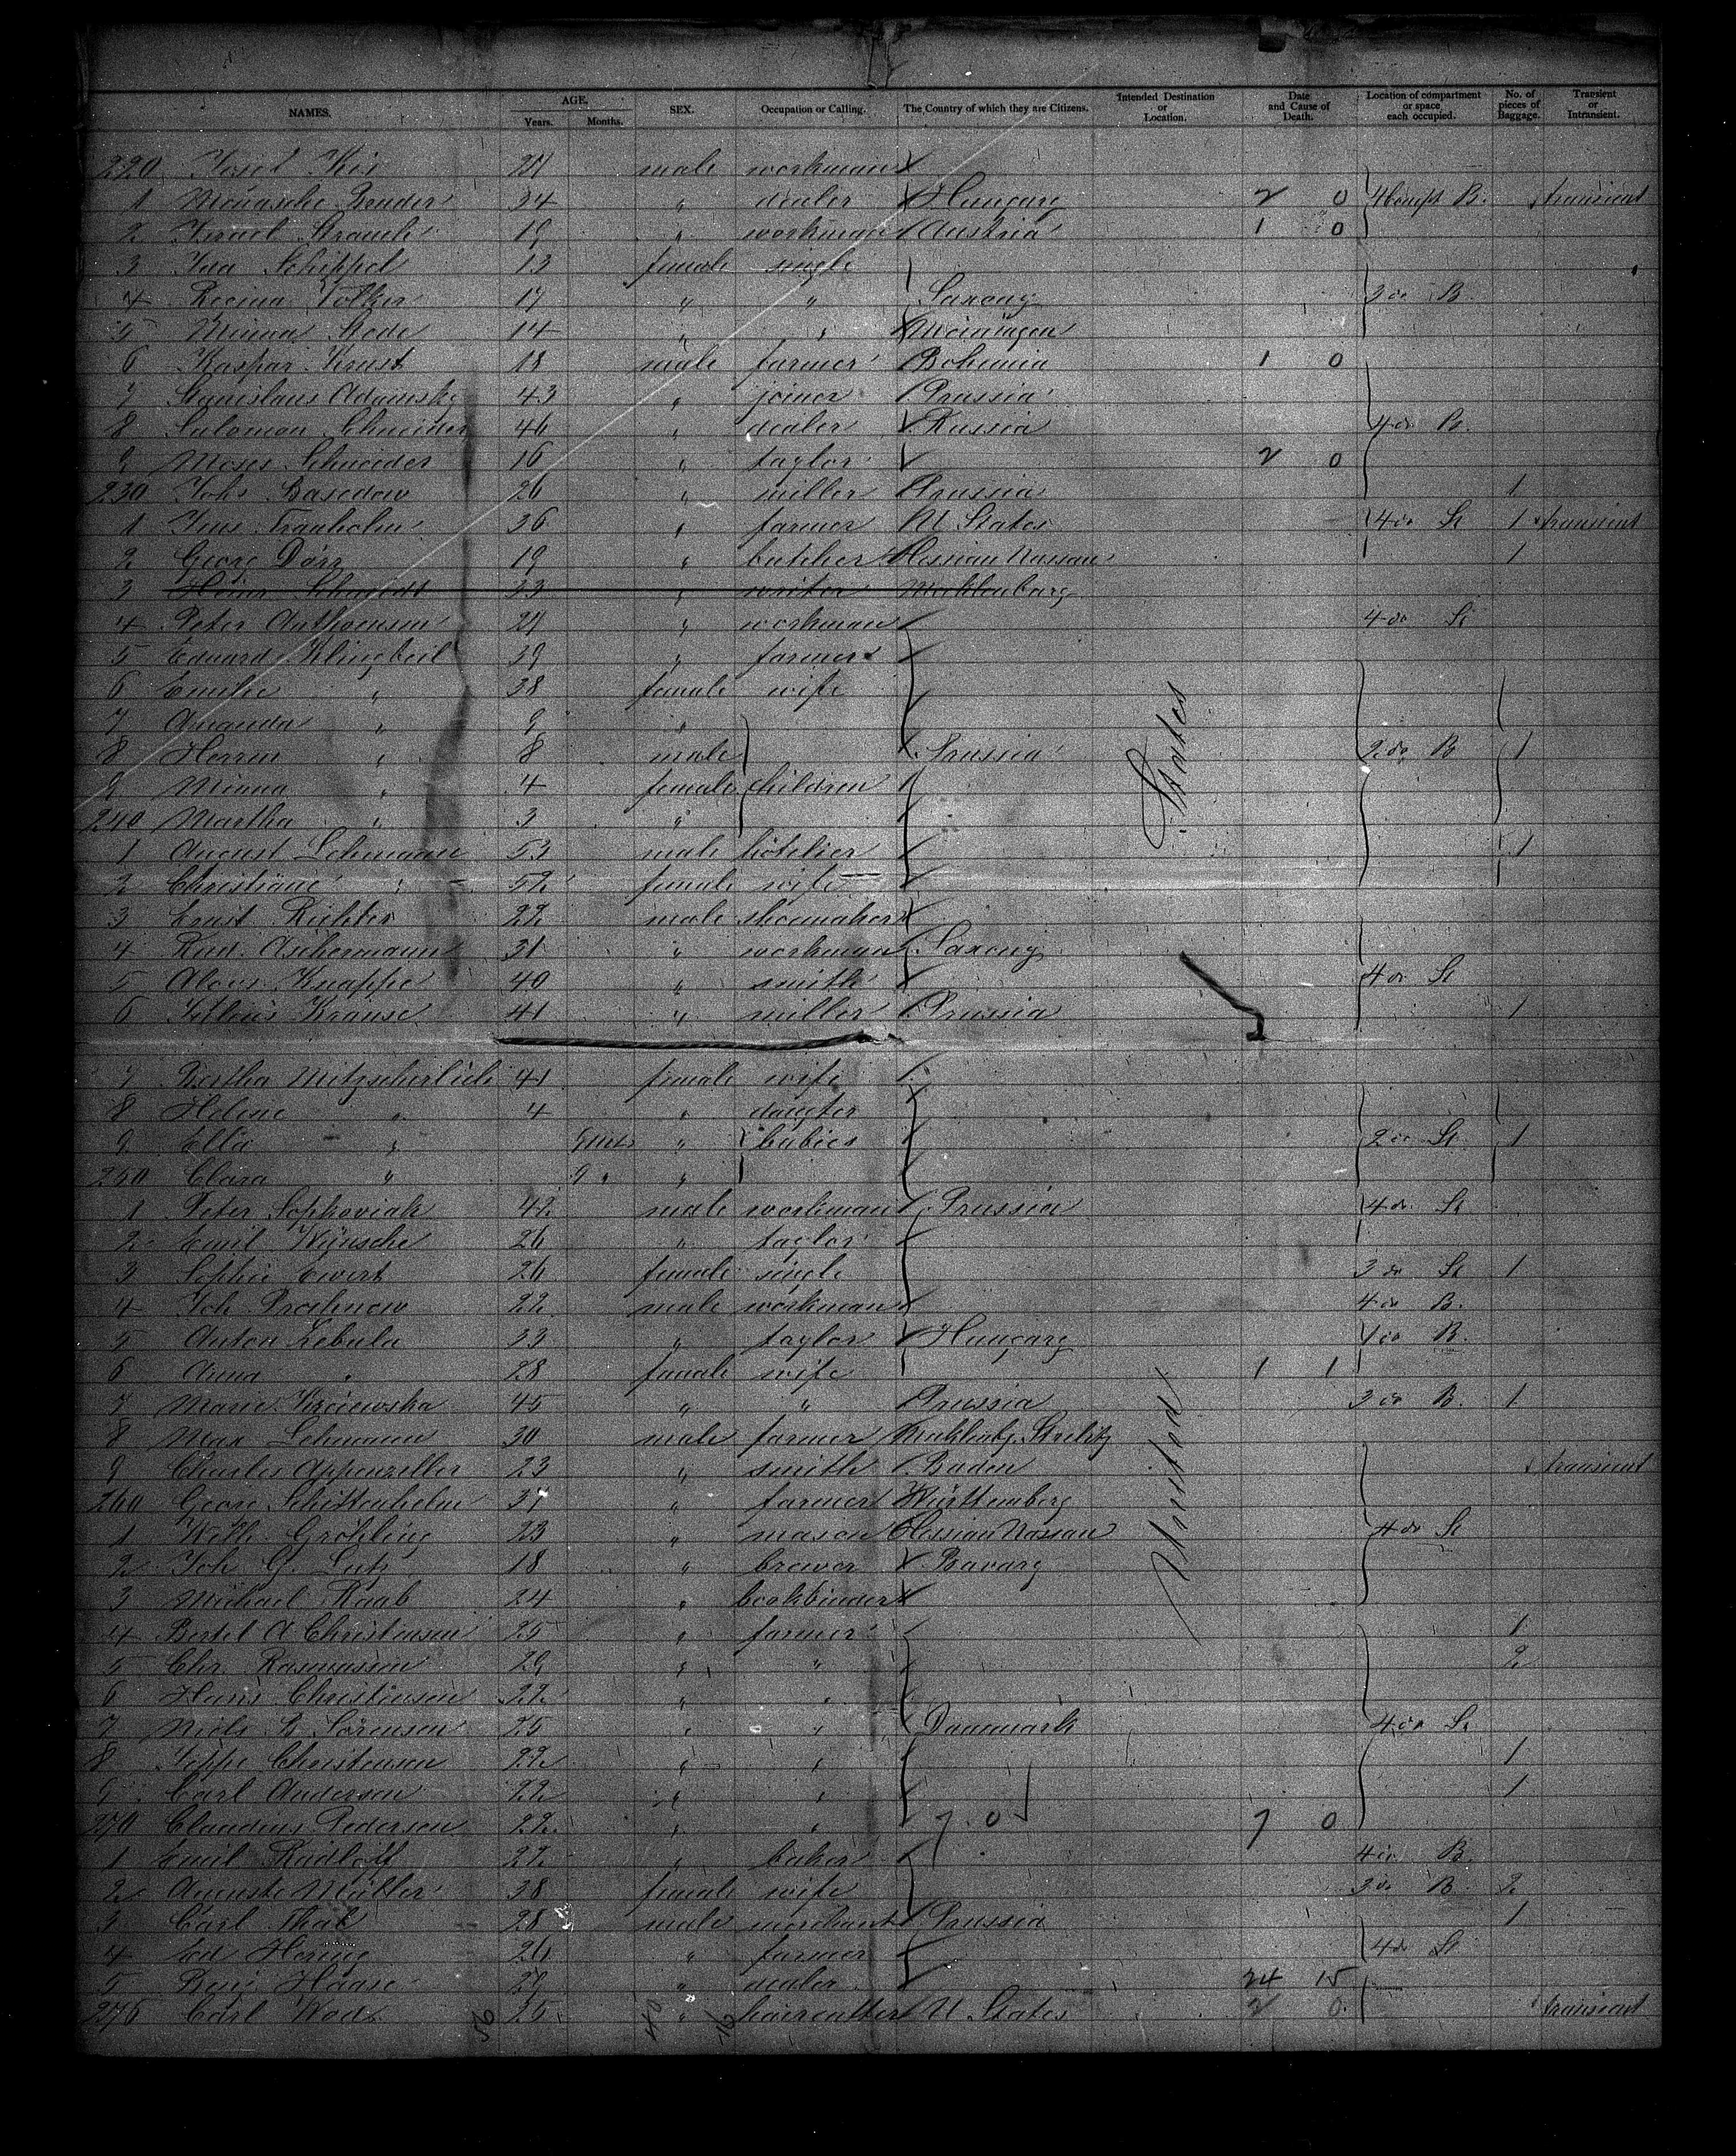 NAMES. AGE. Years. Months. SEX. Occupation or Calling. The Country of which they are Citizens. Intended Destination or Location. Date and Cause of Death. Location of compartment or space each occupied. No. of pieces of Baggage. Transient or Intransient.
220 Josef Kis male workman
1 Bender 34 " dealer Hungary 2 0 4 Compt B. transient
2 Israel 19 " workman Austria 1 0
3 Ida Schippel 13 female single
4 Regina Volker 17 " " Saxony 3 do B
5 Minna Stede 14 " " Meiningen
6 Kaspar 18 male farmer Bohemia 1 0
7 Stanislaus Adamsky 43 " joiner Prussia
8 Salomon Schneider 46 " dealer Russia 4 do B.
9 Moses Schneider 16 " taylor 2 0
230 Johs Basedow 26 " miller Prussia 1
1 Jens Tranholm 36 " farmer U States 4 do St 1 transient
2 Georg Dörr 19 " butcher Hessian Nassau 1
3 Heinr Schmidt 33 " writer Mecklenburg
4 Peter Anthonsen " workman 4 do St
5 Eduard Klingbeil 39 " farmer
6 Emilie " 38 female wife
7 Amanda " 9 "
8 Herrm " 8 male Prussia 2 do B 1
9 Minna " 4 female children
240 Martha " 3 "
1 August Lehmann 53 male hôtelier 1
2 Christiane " 52 female wife
3 Ernst Richter 22 male shoemaker
4 Rud. Aschermann 31 " workman Saxony
5 Alois Knappe 40 " smith 4 do St
6 Julius Krause 41 " miller Prussia 1
7 Bertha Mitzscherlich 41 female wife
8 Helene " 4 " daugter
9 Ella " 9 mts " babies 2 do St 1
250 Clara " 9 " "
1 Peter Sopkoviak 42 male workman Prussia 4 do St
2 Emil Wünsche 26 " taylor
3 Sophie Ewert 26 female single 3 do St 1
4 Joh Prochnow 22 male workman 4 do B.
5 Anton Zebula 33 " taylor Hungary 1 do B.
6 Anna " 28 female wife 1 1
7 Marie 45 " " Prussia 3 do B. 1
8 Max Lehmann 30 male farmer Mecklenbg. Strelitz
9 Charles Appenzeller 23 " smith Baden transient
260 Georg Schittenhelm 31 " farmer Württemberg
1 Wilh Gröhling 23 " mason Hessian Nassau 4 do St
2 Joh G. Lutz 18 " brewer Bavary
3 Michael Raab 24 " bookbinder
4 Bertel A Christensen 25 " farmer 1
5 Chr. Rasmussen 29 " " 2
6 Hans Christensen 22 " "
7 Niels B Sörensen 25 " " Danmark 4 do St
8 Jeppe Christensen 22 " " 1
9 Carl Anderson 22 " " 1
270 Claudius Pedersen 22 " " 7 0 7 0
1 Emil Radloff 22 " baker 4 do B.
2 Auguste Müller 38 female wife 3 do B 2
3 Carl Thal 28 male merchant Prussia 1
4 Ed Hering 26 " farmer 4 do St
5 Haase 29 " dealer 24 15
276 Carl 25 " haircutter U States 2 0 transient
United States